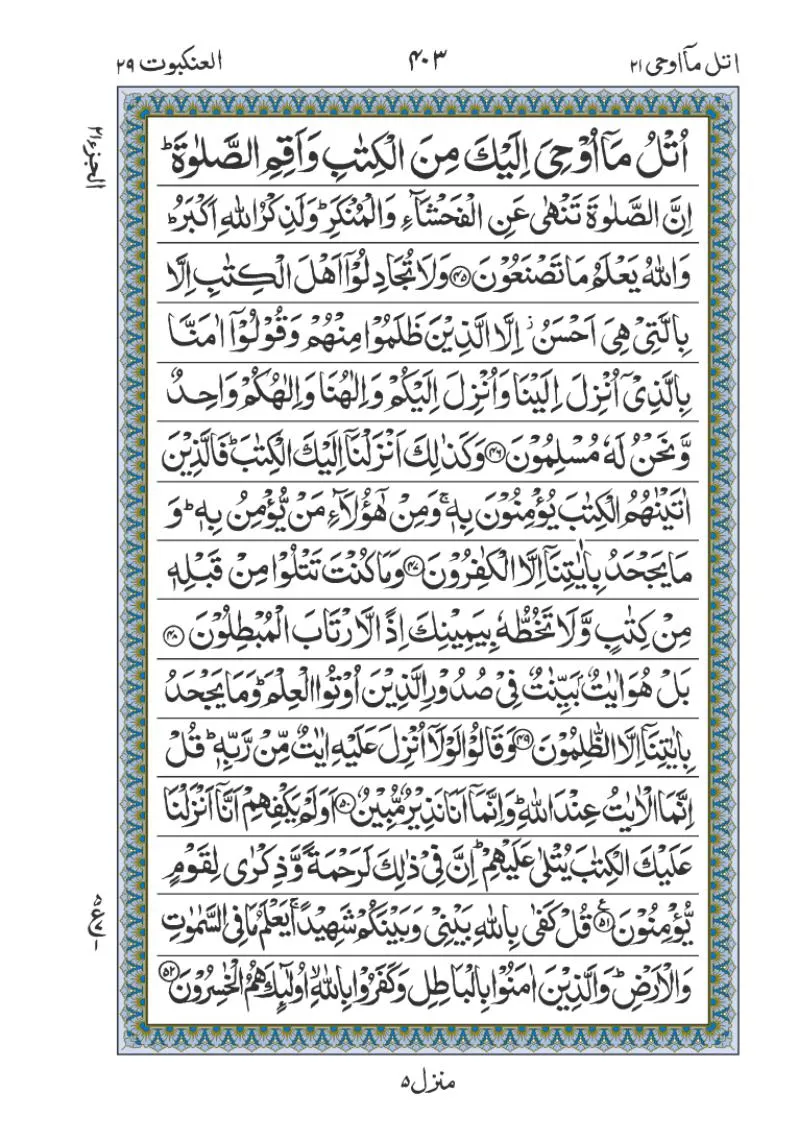 اتل ماۤ اوحی ۲۱
۴۰۳
العنكبوت ۲۹
الجزء ۲۱
اُتْلُ مَاۤ اُوْحِیَ اِلَیْكَ مِنَ الْكِتٰبِ وَاَقِمِ الصَّلٰوةَ ؕ
اِنَّ الصَّلٰوةَ تَنْهٰی عَنِ الْفَحْشَآءِ وَالْمُنْكَرِ ؕ وَلَذِكْرُ اللّٰهِ اَكْبَرُ ؕ
وَاللّٰهُ یَعْلَمُ مَا تَصْنَعُوْنَ ۴۵ وَلَا تُجَادِلُوْۤا اَهْلَ الْكِتٰبِ اِلَّا
بِالَّتِیْ هِیَ اَحْسَنُ ۖ اِلَّا الَّذِیْنَ ظَلَمُوْا مِنْهُمْ وَقُوْلُوْۤا اٰمَنَّا
بِالَّذِیْۤ اُنْزِلَ اِلَیْنَا وَاُنْزِلَ اِلَیْكُمْ وَاِلٰهُنَا وَاِلٰهُكُمْ وَاحِدٌ
وَّنَحْنُ لَهٗ مُسْلِمُوْنَ ۴۶ وَكَذٰلِكَ اَنْزَلْنَاۤ اِلَیْكَ الْكِتٰبَ ؕ فَالَّذِیْنَ
اٰتَیْنٰهُمُ الْكِتٰبَ یُؤْمِنُوْنَ بِهٖ ۚ وَمِنْ هٰۤؤُلَآءِ مَنْ یُّؤْمِنُ بِهٖ ؕ وَ
مَا یَجْحَدُ بِاٰیٰتِنَاۤ اِلَّا الْكٰفِرُوْنَ ۴۷ وَمَا كُنْتَ تَتْلُوْا مِنْ قَبْلِهٖ
مِنْ كِتٰبٍ وَّلَا تَخُطُّهٗ بِیَمِیْنِكَ اِذًا لَّارْتَابَ الْمُبْطِلُوْنَ ۴۸
بَلْ هُوَ اٰیٰتٌۢ بَیِّنٰتٌ فِیْ صُدُوْرِ الَّذِیْنَ اُوْتُوا الْعِلْمَ ؕ وَمَا یَجْحَدُ
بِاٰیٰتِنَاۤ اِلَّا الظّٰلِمُوْنَ ۴۹ وَقَالُوْا لَوْلَاۤ اُنْزِلَ عَلَیْهِ اٰیٰتٌ مِّنْ رَّبِّهٖ ؕ قُلْ
اِنَّمَا الْاٰیٰتُ عِنْدَ اللّٰهِ ؕ وَاِنَّمَاۤ اَنَا نَذِیْرٌ مُّبِیْنٌ ۵۰ اَوَلَمْ یَكْفِهِمْ اَنَّاۤ اَنْزَلْنَا
عَلَیْكَ الْكِتٰبَ یُتْلٰی عَلَیْهِمْ ؕ اِنَّ فِیْ ذٰلِكَ لَرَحْمَةً وَّذِكْرٰی لِقَوْمٍ
یُّؤْمِنُوْنَ ۵۱ ع قُلْ كَفٰی بِاللّٰهِ بَیْنِیْ وَبَیْنَكُمْ شَهِیْدًا ۚ یَعْلَمُ مَا فِی السَّمٰوٰتِ
وَالْاَرْضِ ؕ وَالَّذِیْنَ اٰمَنُوْا بِالْبَاطِلِ وَكَفَرُوْا بِاللّٰهِ ۙ اُولٰٓئِكَ هُمُ الْخٰسِرُوْنَ ۵۲
منزل ۵